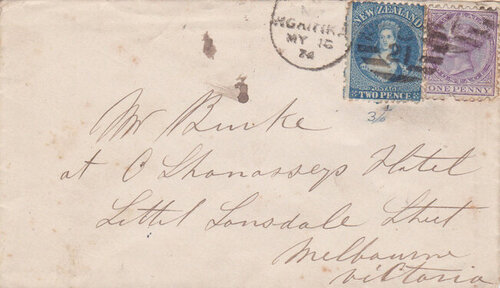 HOKITIKA
MY 16
74
NEW ZEALAND
POSTAGE
TWO PENCE
ONE PENNY
3/6
Mr Burke
at O Shanassys Hotel
Littel Lonsdale Street
Melbourne
Victoria